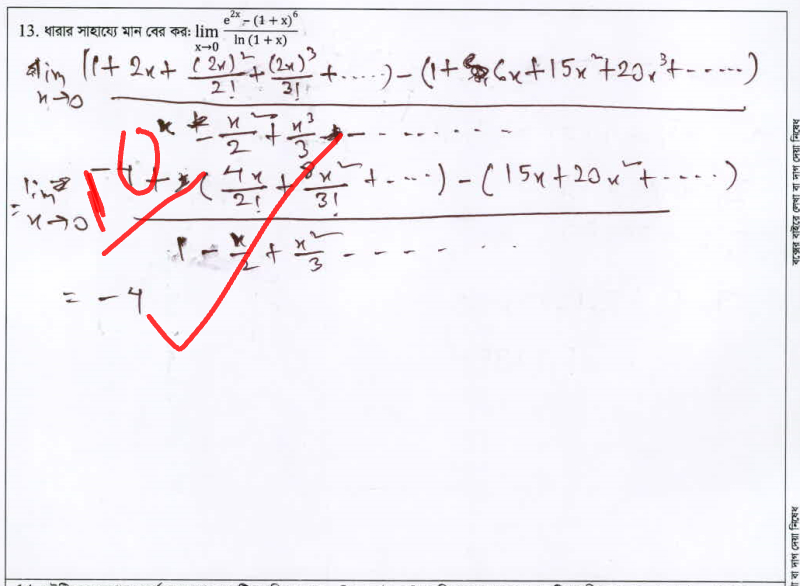 13. ধারার সাহায্যে মান বের কর: lim x→0 (e^2x – (1 + x)^6) / (ln (1 + x))
lim x→0 ((1 + 2x + (2x)²/2! + (2x)³/3! + .....) – (1 + 6x + 15x² + 20x³ + ......)) / (x – x²/2 + x³/3 - - - - - - - -)
= lim x→0 (–4 + (4x/2! + 8x²/3! + ....) – (15x + 20x² + ....)) / (1 – x/2 + x²/3 - - - - - -)
10
= –4
বক্সের বাইরে লেখা বা দাগ দেয়া নিষেধ
বা দাগ দেয়া নিষেধ